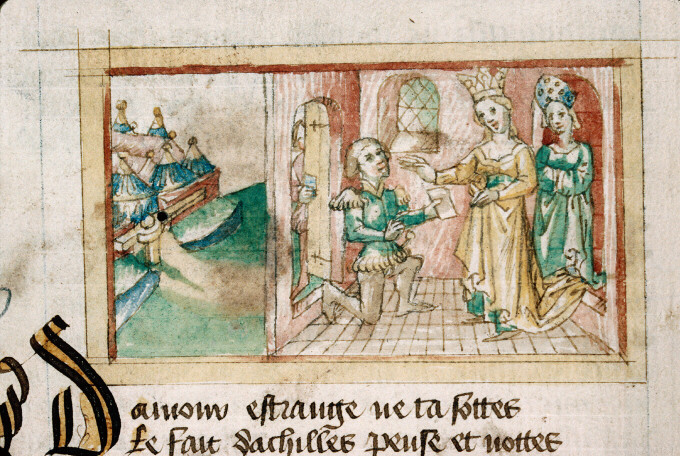 Damour estrange ne ta sottes
Le fait dachilles pense et nottes